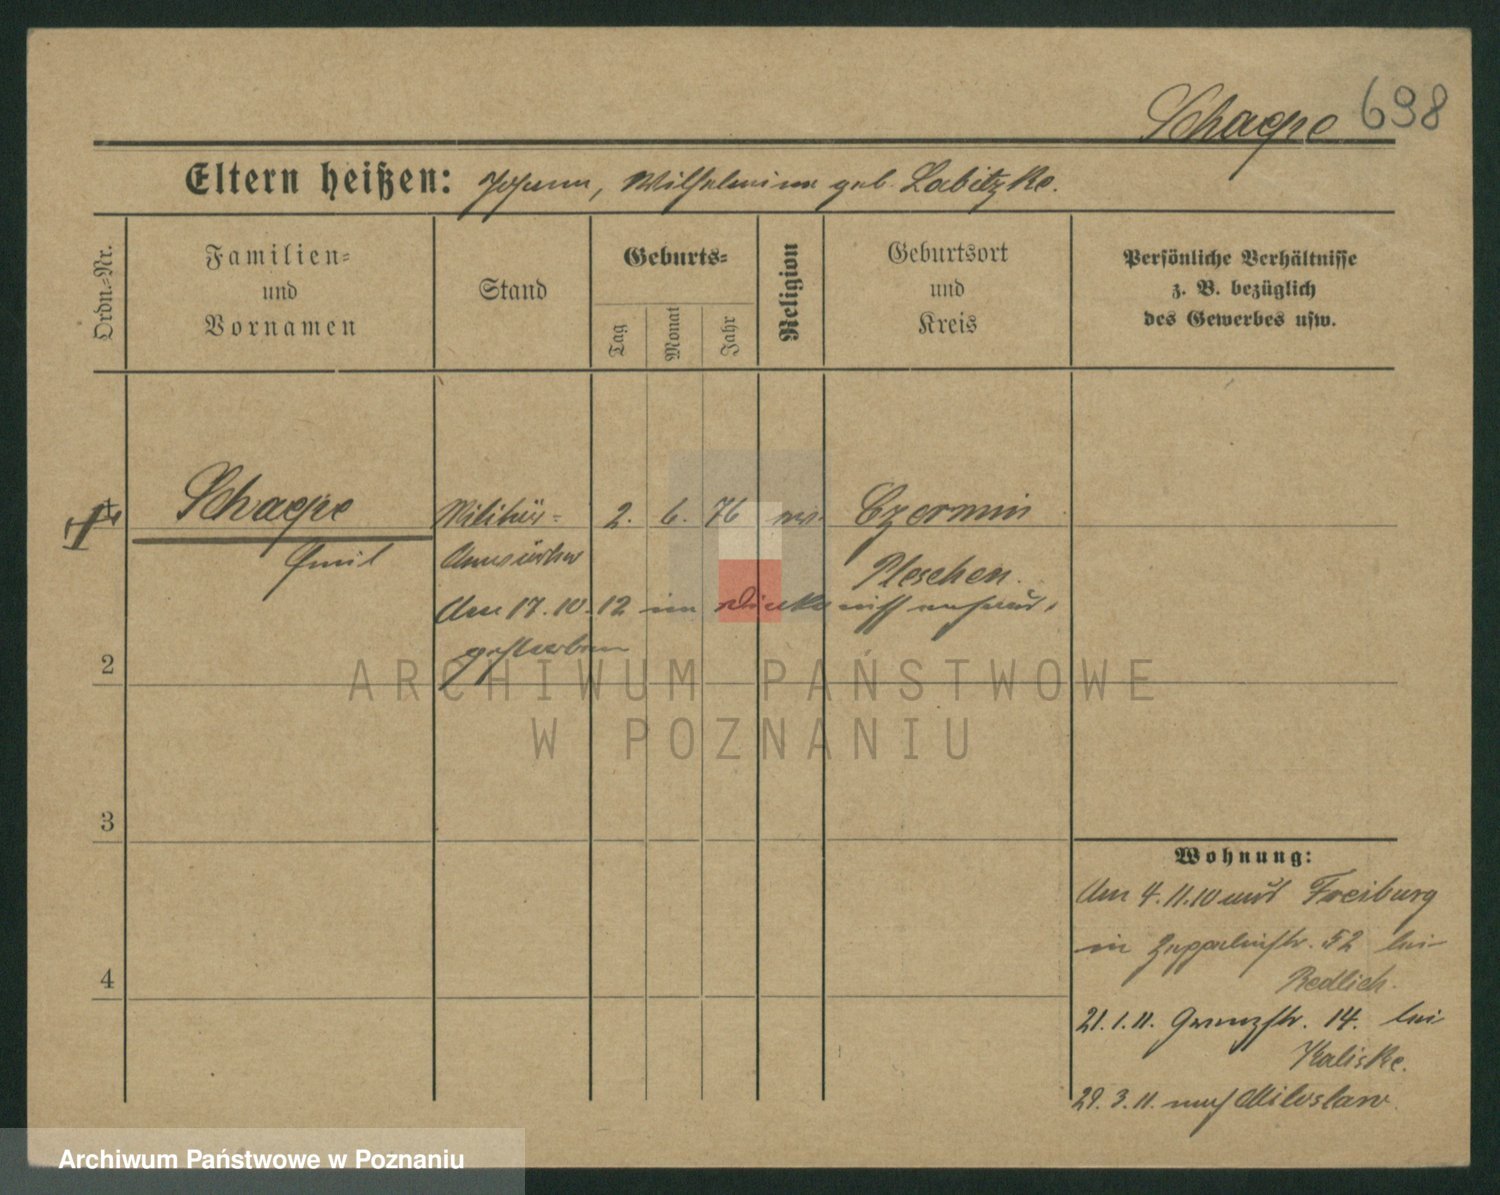 Schaepe 698
Eltern heißen: Johann, Wilhelmine geb. Labitzke.
Ordn.-Nr.
Familien-
und
Vornamen
Stand
Geburts-
Tag
Monat
Jahr
Religion
Geburtsort
und
Kreis
Persönliche Verhältnisse
z. B. bezüglich
des Gewerbes usw.
Schaepe Militär- 2. 6. 76 ev. Czermin
Emil Anwärter Pleschen.
Am 17.10.12 im
gestorben
2
3
4
Wohnung:
Am 4.11.10 aus Freiburg
in Zeppelinstr. 52 bei
Redlich.
21.1.11. Grenzstr. 14. bei
Kaliske.
29.3.11. nach Miloslaw.
ARCHIWUM PAŃSTWOWE
W POZNANIU
Archiwum Państwowe w Poznaniu